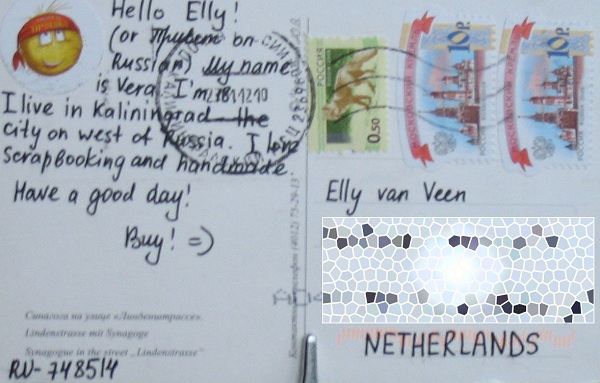 Hello Elly!
(or Привет on
Russian) My name
is Vera. I'm 18.
I live in Kaliningrad - the
city on west of Russia. I love
scrapbooking and handmade.
Have a good day!
Buy! =)
Синагога на улице «Линденштрассе».
Lindenstrasse mit Synagoge
Synagogue in the street „Lindenstrasse"
RU-748514
РОССИЯ
0.50
МОСКОВСКИЙ КРЕМЛЬ
10р.
МОСКОВСКИЙ КРЕМЛЬ
10р.
Elly van Veen
NETHERLANDS
(4012) 73-29-13